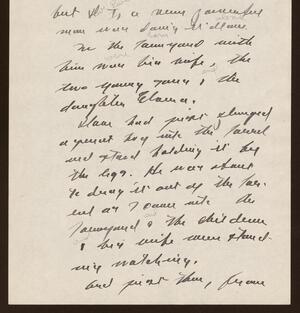 but it, a more powerful
man was
In the farmyard with
him was his wife, the
two young sons & the
daughter
had just plunged
a great hog into the barrel
and stood holding it by
the legs. He was about
to drag it out of the bar-
rel as I came into the
farmyard & the children
& his wife were stand-
ing watching.
And just then, from